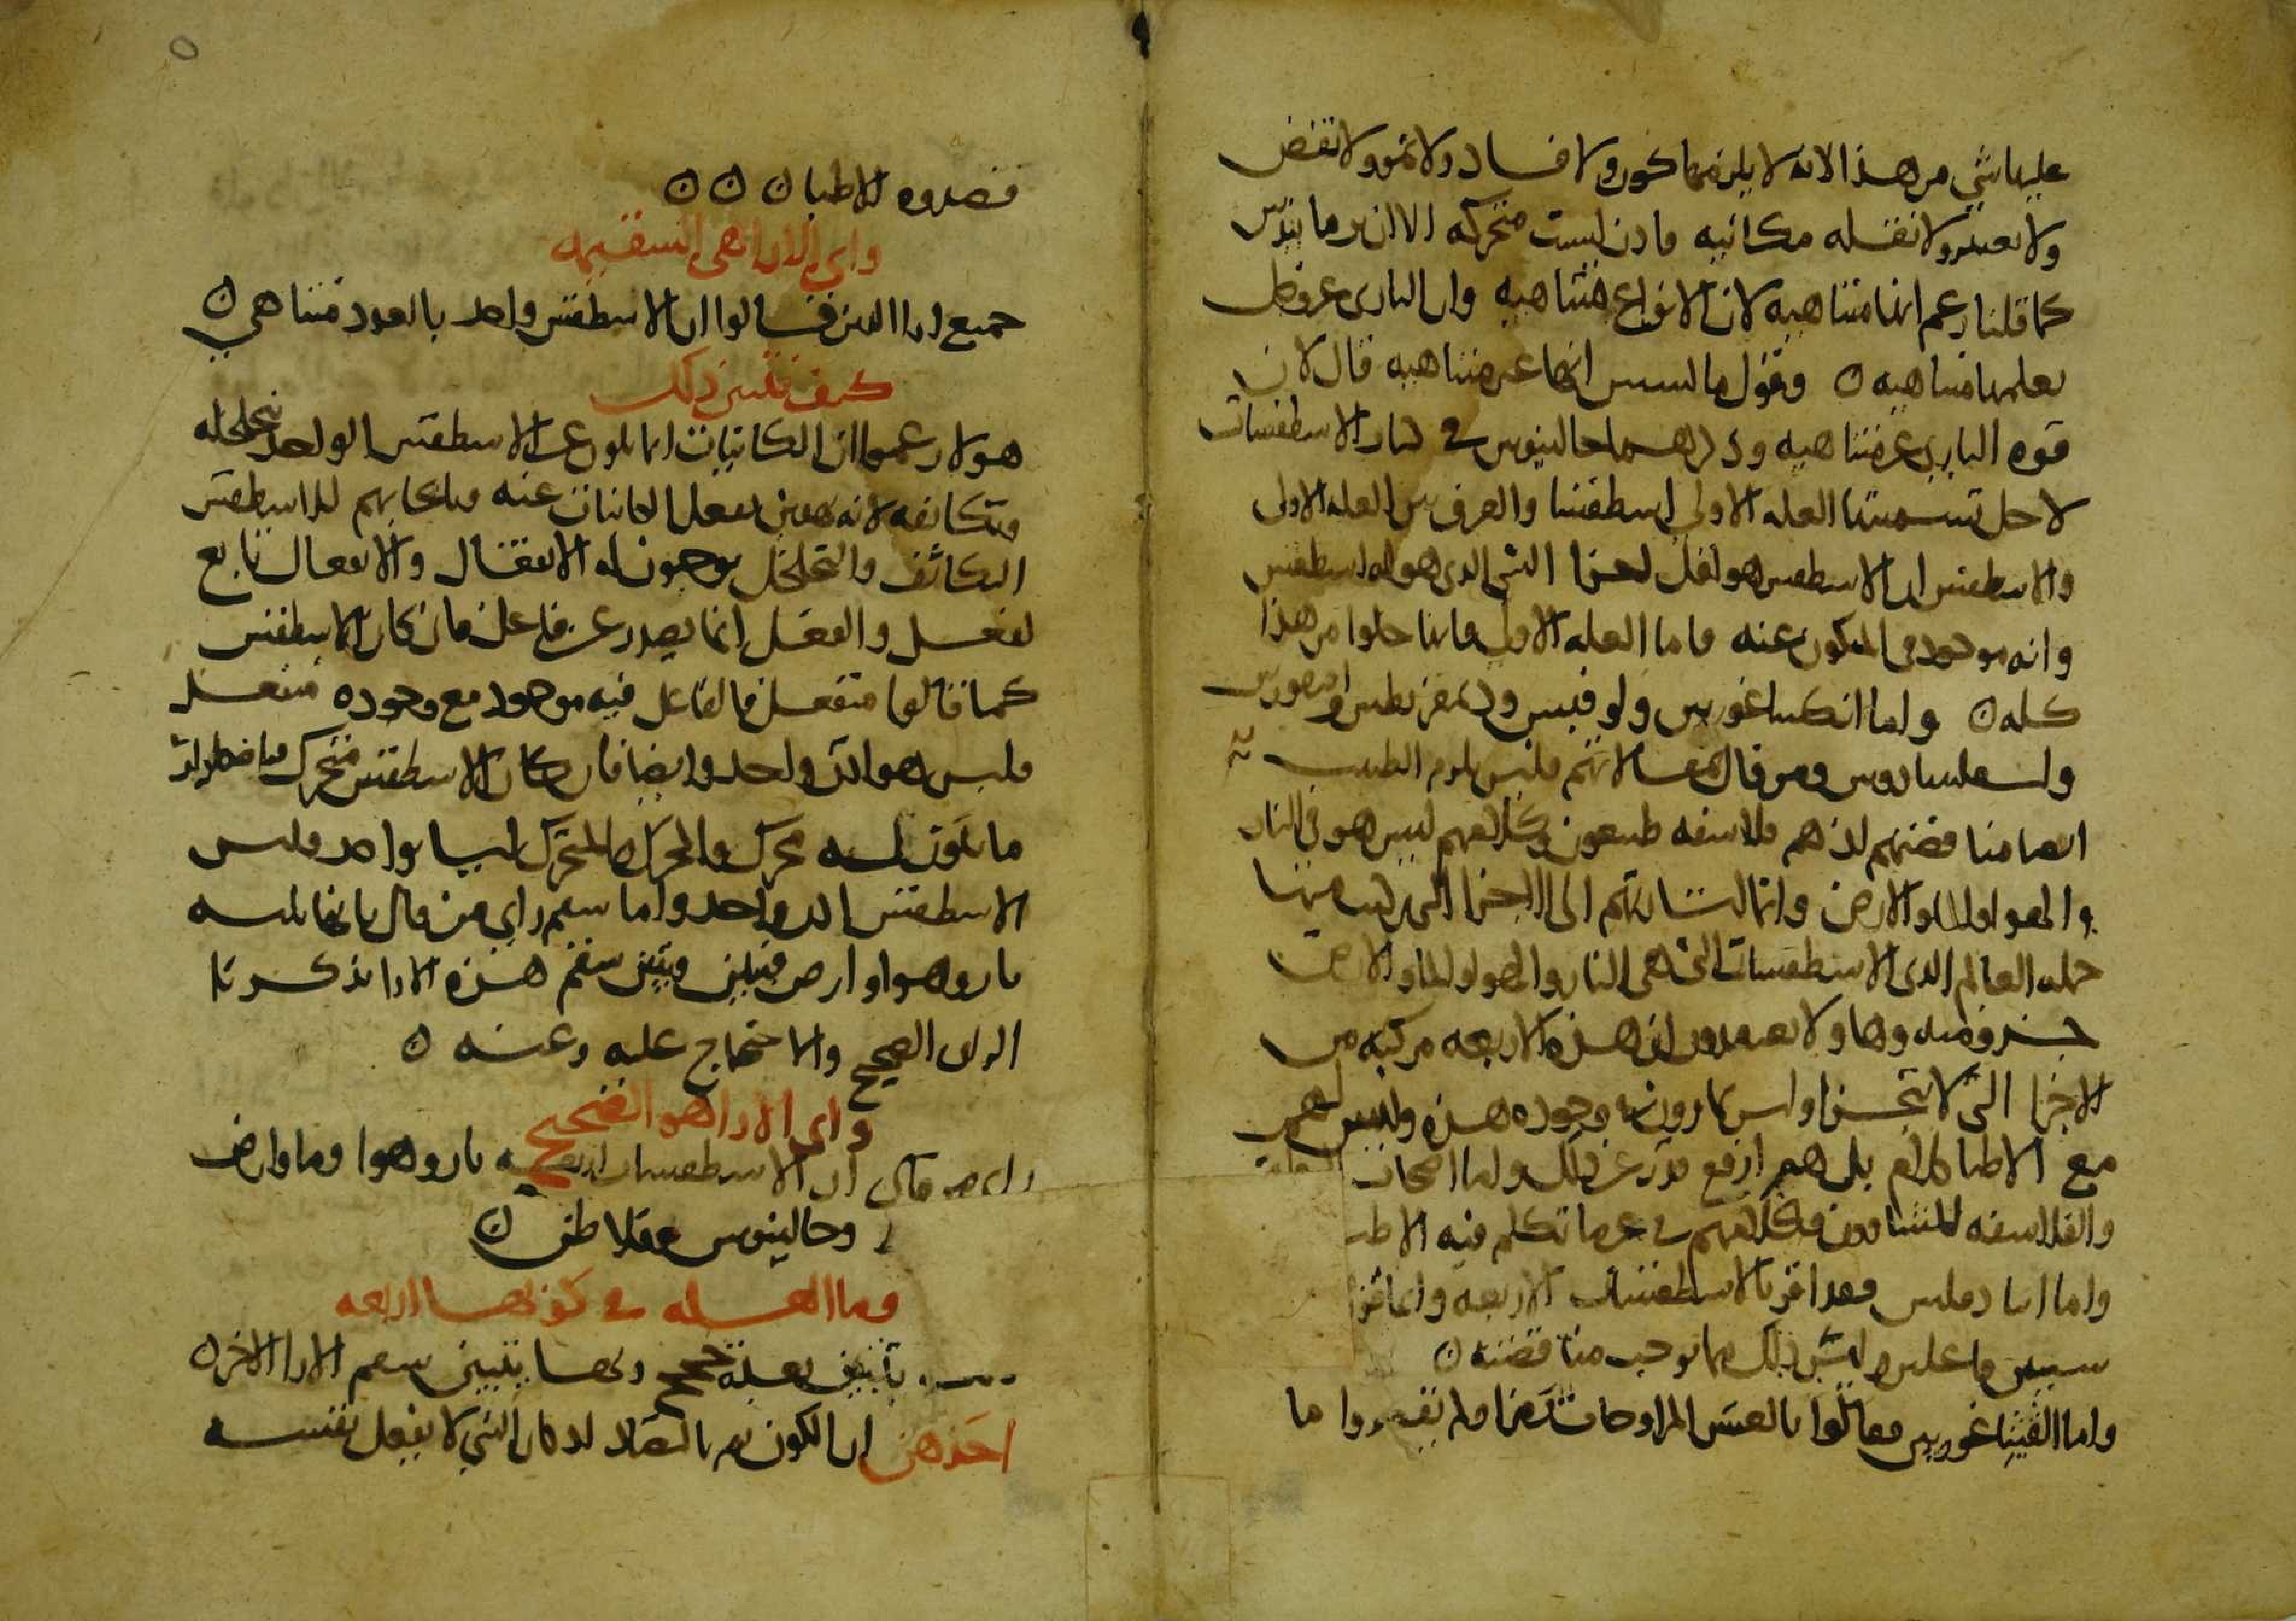 عليها شي من هذا لانه لا يلزمها كون ولا فساد ولا نمو ولا نقض
ولا تغير ولا نقله مكانيه فاذن ليست متحركه الا ان برمانيدس
كما قلنا زعم انها متناهيه لان الانواع متناهيه وان الباري عز وجل
يعلمها متناهيه ٥ وقول مالسس انها غير متناهيه قال لان
قوه الباري غير متناهيه وذكرهما جالينوس في كتاب الاسطقسات
لاجل تسميتها العله الاولى اسطقسا والفرق بين العله الاولى
والاسطقس ان الاسطقس هو اقل اجزا الشي الذي هو له اسطقس
وانه موجود في المتكون عنه فاما العله الاولى فانها خلوا من هذا
كله ٥ واما انكساغورس ولوقيبس وديمقريطس وابيقورس
واسقلبيادوس ومن قال بمقالاتهم فليس يلزم الطبيب
ايضا مناقضتهم اذ هم فلاسفه طبيعيون وكلامهم ليس هو في النار
والهوا والما والارض وانما اشارتهم الى الاجزا التي ركب منها
جمله العالم الذي الاسطقسات التي هي النار والهوا والما والارض
جزو منه وهاولا يعتقدون ان هذه الاربعه مركبه من
الاجزا التي لا تتجزا وليس ينكرون وجود هذه وليس لهم
مع الاطبا كلام بل هم ارفع قدر عن ذلك واما اصحاب
والفلاسفه المشاوون فكلامهم في غير ما تكلم فيه الاطبا
واما انبادقليس فقد اقر بالاسطقسات الاربعه وانما قرن
سببين فاعلين وليس ذلك مما يوجب مناقضته ٥
واما الفيثاغوريين فقالوا بالعشر المزاوجات ايضا ولم يقصدوا ما
قصدوه الاطبا ٥ ٥ ٥
واي الارا هي السقيمه
جميع ارا الذين قالوا ان الاسطقس واحد بالعدد متناهي ٥
كيف تبين ذلك
هولا زعموا ان الكاينات انما تكون عن الاسطقس الواحد بتخلخله
وتكاثفه لانه حين تفعل الكاينات عنه فبايجابهم للاسطقس
التكاثف والتخلخل يوجبون له الانفعال والانفعال تابع
لفعل والفعل انما يصدر عن فاعل فان كان الاسطقس
كما قالوا منفعل فالفاعل فيه موجود مع وجوده منفعل
فليس هو اذن واحد وايضا فان كان الاسطقس متحرك فباضطرار
ما يكون له محرك والمحرك والمتحرك ليسا بواحد فليس
الاسطقس اذن واحد واما سقم راي من قال بانها ثلثه
نار وهوا وارض فتبين وتبين سقم هذه الارا بذكرنا
الراي الصحيح والاحتجاج عليه وعنه ٥
واي الارا هو الصحيح
راي من قال ان الاسطقسات اربعه نار وهوا وما وارض
وجالينوس وفلاطن ٥
وما العله في كونها اربعه
يتبين بعده حجج وبها يتبين سقم الارا الاخر ٥
احدهن ان الكون يتم بالتضاد اذ كان الشي لا يفعل بنفسه